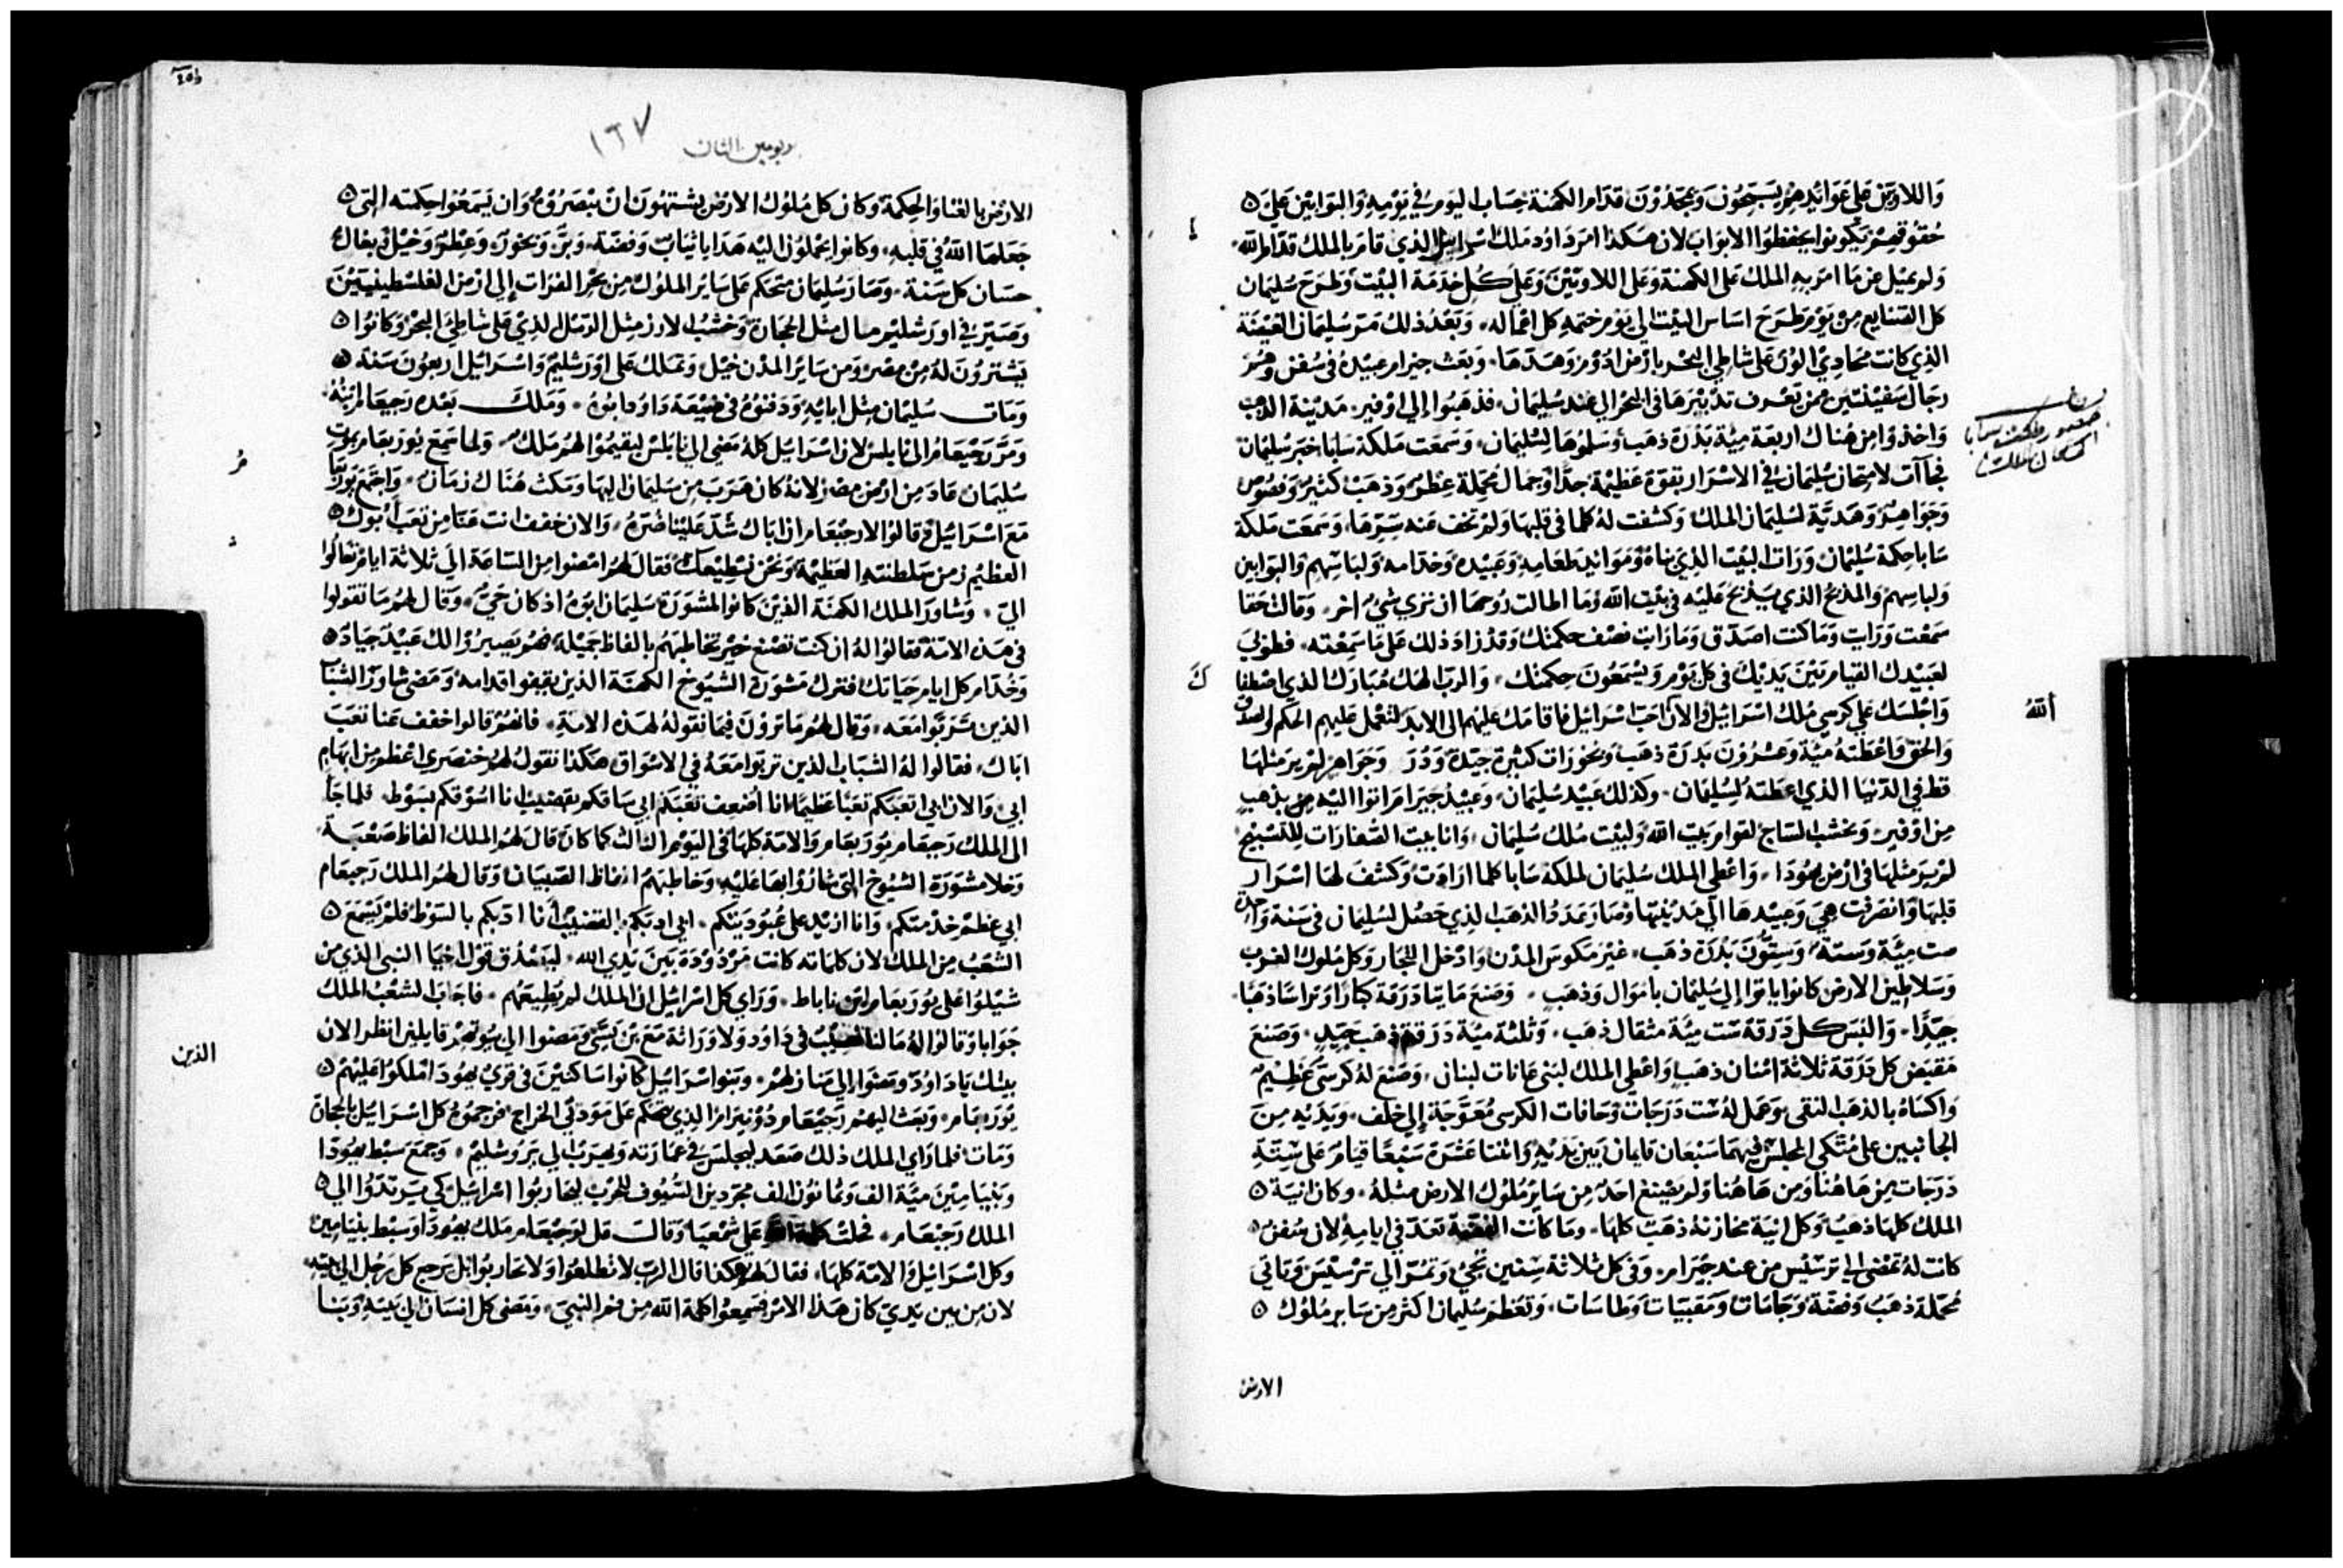 وَاللاويّن عَلى عَوَائدِهِمْ يسَبّحُون وَيمجّدُوْنَ قدّام الكهنَة حِسَاب اليَوم في يَوْمِهِ وَالبَوابين عَلى
حُقُوقهِمْ يَكونوا يحفظوا الابوَاب لان هكذا امرَ دَاوُد مَلك اسْرَاييل الذي قامَرَ بالملك قدّام الله
وَلم يميل من مَا امَرَ بهِ الملك عَلى الكهنَة وَعَلى اللاويّيْن وَعَلى كُلّ خدَمَة البَيْت وَطرَح سُليمَان
كل الصَنايع مِن يَوْم طرَحَ اسَاس البيْت الى يَوم ختمهِ كل اعْمَاله وَبَعْدُ ذلكُ مَرّ سُليمَان
الذي كانت محَادِي الوُنَ عَلى شاطي البحْر بارْض ادُوْم وَهَدّهَا وَبعَث حيرام عبيْدهُ في سُفن وَهُمْ
رجَال سَفينتيْن ممن تعْرف تدْبيْرهَا في البحْر الي عند سُليمَان فذهَبُوا إلى اوْفير مَديْنة الذهب
وَاخذوا مِن هُناك اربعَة ميّة بَدْرَة ذهَب وسَلموُهَا لِسُليمَان وَسَمعَت مَلكة سَابَا خبَر سُليمَان
فجاآت لامتحان سُليمَان في الاسْرَار بقوّة عَظيمَة جدًّا وَجمَال مُحمّلة عِطْر وَذهَبْ كثير وَفصُوص
وَجوَاهِر وَهَديّة لسُليمَان الملك وَكشفت لهُ كلمَا في قلبهَا وَلم تخف عَنه سِرّهَا وَسَمعَت مَلكة
سَابا حِكمَة سُليْمَان وَرَات البيْت الذي بنَاهُ وَمَوَائِد طعَامِهِ وَعَبيْدهِ وَخدّامه وَلبَاسَهِم وَالبَوّابين
وَلباسِهِم وَالمذبح الذي يذبح عَليْه في بيْت الله وَمَا اطالت رُوحهَا ان ترى شيْ اخر وَقالت حَقا
سَمعْت وَرَايت وَمَا كنت اصَدّق وَمَا رَايت نصْف حكمتك وَقد زادَ ذلك عَلى مَا سَمِعْته فطوْبَى
لعَبيْدك القيام بَيْنَ يَديْك في كل يَوْم وَيَسْمَعُونَ حِكمتك وَالربّ الهك مُبَارَك الذي اصْطفا
وَاجْلسَك عَلى كرسي مُلك اسْرَائيْل وَالانَ احَبّ اسْرَائيْل فاقامَك عليْهم الى الابد لتعْمَل عَليْهم الحكم وَالصدْق
وَالحق فَاعْطتهُ ميّة وَعشْرُونَ بَدرَة ذهَب وَبخوُرَات كثيْرة جيّدة وَدُرَر وَجَوَاهِر لم يرَ مثلهَا
قط في الدّنيَا الذي اعطَتهُ لِسُليمَان وَكذلك عَبيْد سُليمَان وَعَبيْدُ حيرام اتوا اليْه مِن بذهَب
مِن اوْفير وَبخشب السَاج لقوايم بَيت الله وَلبيْت مُلك سُليمَان وَانابيبَ الصفارَات للتسْبيْح
لم يرَ مثلهَا في ارْض يهُودَا وَاعْطي الملك سُليمَان لملكة سَابا كلما ارَادَت وَكشفَ لهَا اسْرَار
قلبهَا وَانصَرَفت هِيَ وَعَبيْدهَا الي مَديْنتهَا وَصَارَ عَدَدُ الذهَب الذِي حَصَل لسُليمَان في سَنة وَاحدة
ست ميّة وستة وَسِتونَ بَدْرَة ذهَب غيْر مَكوس المدن وَادْخل التجّار وَكل مُلوك الغرب
وَسَلاطين الارض كانوا ياتوا إلي سُليمَان بامْوَال وَذهَب وَصَنعَ مَايتا دَرَقة كبَارًا وَترَاسًا ذهَبًا
جيّدًا وَالبَسَ كل دَرَقة سَت ميّة مثقال ذهَب وَثلثة ميّة دَرَقة ذهَب جَيّد وَصَنعَ
مَقبَض كل دَرَقة ثلاثة امْنان ذهَب وَاعْطي الملك لبَنى غابَات لبنان وَصَنعَ لهُ كرسي عَظيْم
وَاكسَاهُ بالذهَب النقى وَعَمل لهُ ست دَرَجَات وَحَافات الكرسي مُعَوّجَة إلى خَلف وَيَدَيْهِ مِنَ
الجانبين عَلى مُتكي المجلس فيهمَا سَبْعَان قايمَان بَين يَديْهِ وَاثنَا عَشَرَة سَبْعًا قيام عَلى سِتة
دَرَجَات مِن هَاهُنا وَمِن هَاهُنا وَلم يصْنع احَد مِن سَاير مُلوك الارض مثلهُ وكان انيَة
الملك كلهَا ذهَب وَكل انيَة مخازنهُ ذهَبْ كلهَا وَمَا كانت الفضّة تعَدّ في ايامِهِ لان سُفنُ
كانت لهُ تمْضي الي ترْسِيس مِن عند حيرام وَفي كل ثلاثة سِنين تجي وَتمرّ الي ترْسيسَ وَتاتي
مُحمّلة ذهَبْ وَفضّة وَجَامَات وَمَقببَات وَطاسَات وَتعَظم سُليمان اكثر مِن سَاير مُلوك
الارض
ك
الله
١٦٧
الارْض بالغنَا وَالحِكمَة وَكان كل مُلوُك الارض يشتهُونَ انْ يبْصرُوْهُ وَان يَسَمعُوا حِكمَته التى
جَعَلهَا اللهُ في قلبهِ وكانوا يحْملوُن اليْه هَدايا ثيَابْ وَفضّة وَبزّ وَبخوْر وَعِطرْ وَخيْل وَبغال
حسَان كل سَنة وَصَارَ سُليمَان متحكم عَلى سَائر الملوُك مِن بحر الفرات إلى ارْض الفلسْطينيّيْن
وَصَيّرَ في اورَشليْم مال مثل الحجارة وَخشبُ الارز مِثل الرَمْل الذِيْ عَلى شاطئ البحْر وَكانوُا
يَشترُوْنَ لهُ مِنْ مِصْر وَمن سَائر المدْن خيْل وَتملك عَلى اوْرَشليْم وَاسْرَائيل اربعُونَ سَنة
وَمَات سُليْمَان مِثل ابَائِهِ وَدَفنوُهُ في ضيْعَة دَاوُد ابُوهُ وَمَلك بَعْده رَحبْعَام ابنهُ
وَمَرّ رَحبْعَامُ الى نابلس لان اسْرَائيْل كلهُ مَضي الي نابلس ليقيْموا لهمْ مَلك وَلما سَمعَ يُورَبعَام بموْت
سُليمَان عَادَ مِن ارْض مصْر لانهُ كان هَرَبَ مِن سُليمَان اليهَا وَمَكث هُناك زمَان وَاجْتمعَ يوُرَبعَام
مَعَ اسْرَائيْل وَقالوُا لارحبْعَام ان ابَاك شَدّ عَليْنا ضرّهُ وَالان خفف انت عَنّا مِن تعَب أبُوك
العظيْم وَمِن سَلطنتهِ العَظيْمَة وَنحْن نطيْعك فقَال لهُم امْضوا مِن السَاعَة الي ثلاثة ايام وَتعَالوا
اليّ وَشاوَر الملك الكهنَة الذيْن كانوا لمشوَرَة سُليمَان ابوْهُ اذ كان حَيّ وَقال لهُم مَا تقولوا
في هَذه الامّة فقالوُا لهُ ان كنت تصْنع خيْر تخاطبهُم بالفاظ جَميْلة فهُم يَصيرُوْا لك عَبيْد جيَاد
وَخُدّام كل ايام حَيَاتك فترك مَشوَرَة الشيُوخ الكهنَة الذين يقفوا قدامهُ وَمَضى شاوَر الشبَاب
الذين ترَبّوا مَعَه وَقال لهُم مَا ترَوْن فيمَا نقولهُ لهَذه الامّة فانهُم قالوا خفف عَنا تعَبَ
ابَاك فقالوا لهُ الشبَاب الذين ترَبّوا مَعَهُ في الاسْوَاق هكذا تقول لهُم خنصَري اعْظم مِن ابهَام
ابي وَالان ابي اتعَبكم تعَبًا عَظيمًا انا أضعِف تعَبَكم ابي سَاقكم بقضيْب انا اسُوْقكم بسَوْط فلما جَا
الى الملك رَحبعَام يوُرَبعَام وَالامّة كلهَا في اليَوْم الثالث كما كان قالَ لهُم الملك الفاظ صَعْبَة
وَخلا مشوَرَة الشيُوخ التى شارُوا بهَا عَليْهِ وَخاطبهُمْ الفاظ الصّبيَان وَقال لهُم الملك رَحبعَام
ابي عَظم خدْمتكم وَانا ازيْد عَلى عُبُوديَتكم ابي ادّبكم بالقضيْب أنا ادّبكم بالسَوْط فلمْ يَسْمَعَ
الشعْبُ مِن الملك لان كلمَاته كانت مَرْدُوْدَة بَيْنَ يَدي الله ليَصْدُق قوْل اخيَا النبي الذي من
شيْلوُا عَلى يُورَبعَام ابن ناباط وَرَاي كل اسْرَائيل ان الملك لم يطيْعَهُم فاجَابَ الشعْبُ الملك
جَوَابا وَقالوُا لهُ مَا لنا نصيْبُ في دَاوُد وَلا وَرَاثة مَعَ بن يسّي وَمَضوا الي بيُوتهمْ قايلين انظر الان
بيتك يَا دَاوُد وَمَضوا إلى مَنازلهمْ وَبَنوا اسْرَائيْل كانوا سَاكنيْن في قري يهُودَا امْلكوُا عَليْهُمْ
يوُرَبعَام وَبَعَث اليْهم رَحبْعَام دُوْنيرَام الذي يتحَكم عَلى مَؤدي الخرَاج فرَجمُوهُ كل اسْرَائيل بالحجارة
وَمَات فلما رَاي الملك ذلك صَعَد ليَجلس في عمَارَته وَيهرُبْ الي يرُوشليْم وَجمَع سبْط يهُودَا
وَبنيَامِيْنَ ميّة الف وَثمانوُن الف مجرّدين السّيُوف للحَرْب ليحَاربُوا اسْرَائيل كي يرتدّوا الي
الملك رَحبْعَام فحلت كلمة الله عَلى شمْعيَا وَقالت قل لرَحبعَام مَلك يهُودَا وَسبْط بنيَامِيْن
وَكل اسْرَائيْل وَالامّة كلهَا فقال لهُم هكذا قال الربّ لا تطلعُوا وَلا تحَاربُوا بَل يَرجع كل رَجُل الي بيتهِ
لان مِن بين يَدي كان هَذا الامْر فسَمعُوا كلمَة الله مِن فم النبيّ وَمَضى كل انسَان الي بَيتهِ وَبَنا
الذين